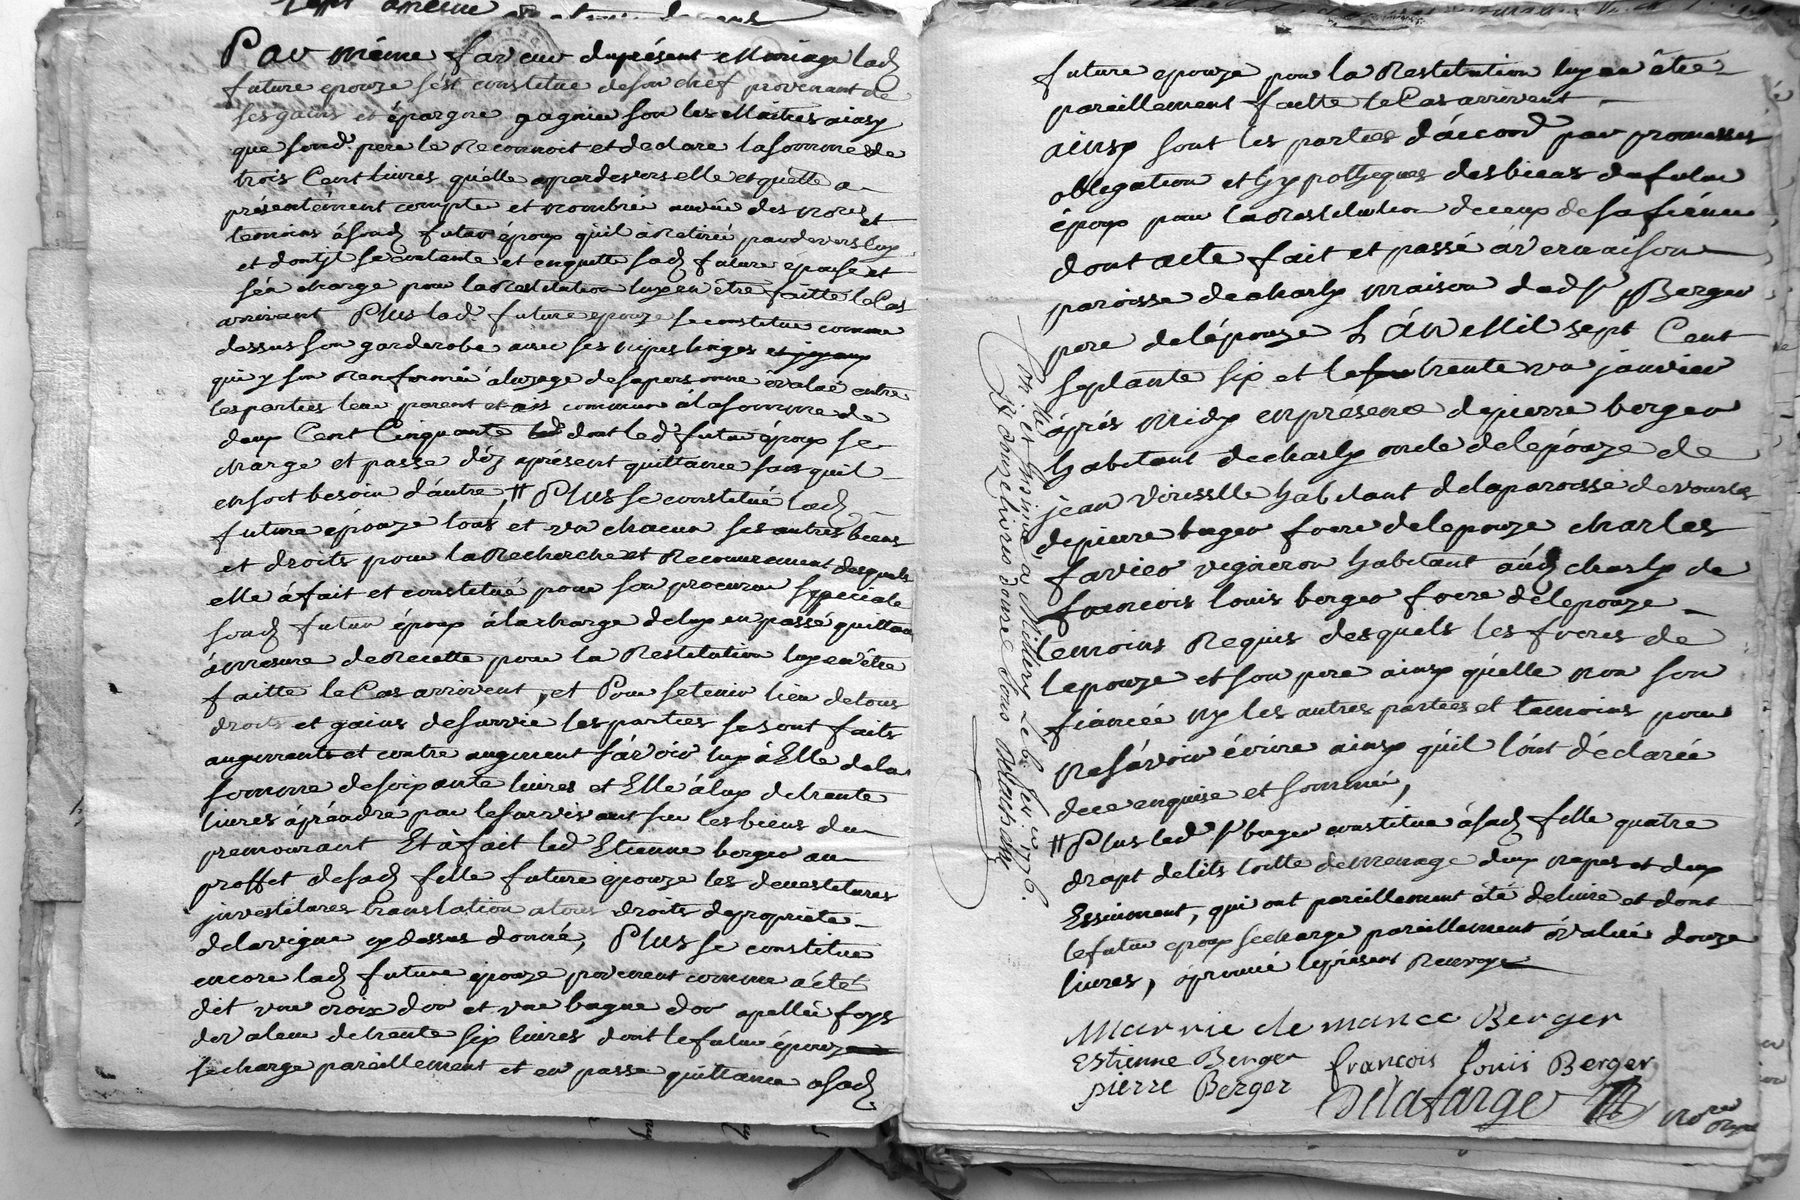 Par même faveur du présent Mariage lad.
future epouze s'est constitué de son chef provenant de
ses gains et épargne gagniée sou les Maitres ainsy
que sond. pere le Reconnoit et declare la somme de
trois Cent livres qu'elle a pardevers elle et quelle a
présentément compté et nombré au vûe des nores et
temoins à sond. futur époux qu'il a Retirée pardevers luy
et dont jl se contente et en quitte sad. future épouse et
s'en charge pour la Restitution luy en être faitte le Cas
arrivant Plus lad. future epouze se constitue comme
dessus son garderobe avec ses nipes linges et joyaux
qui y son Renfermée à luzage de sa personne évalué entre
les parties leur parent et amis commun à la somme de
deux Cent Cinquante livres dont led. futur époux se
charge et passe déz aprésent quittance sans quil
en soit besoin d'autre, # Plus se constitue lad.
future épouze tous et un chacun ses autres biens
et droits pour la Recherche et Recouvrement desquels
elle à fait et constitué pour son procureur sppeciale
sond. futur époux à la charge de luy en passé quittance
à mesure de Recette pour la Restitution luy en être
faitte le Cas arrivent, et Pour se tenir lieu de tous
droits et gains de survie les parties se sont faits
augments et contre augment sávoir luy à Elle de la
somme de soixante livres et Elle à luy de trente
livres à préndre par le survivant sur les biens du
premourant Et à fait led. Etienne berger au
proffet de sad. fille future epouze les devestitures
jnvestitures translation a tous droits de propriété
de la vigne cy dessus donné, Plus se constitue
encore lad. future épouze provenent comme a été
dit une croix d'or et une bague d'or apellée foys
de valeur de trente six livres dont le futur époux
se charge pareillement et en passe quittance a sad.
future epouze pour la Restitution luy en être
pareillement faitte le Cas arrivent
ainsy sont les parties d'áccord par promesses
oblegation et hyppotheques des biens du futur
époux pour la Restitution de ceux de sa fiéncée
dont acte fait et passé à vernaison
paroisse de charly maison dud. sr Berger
pere de lépouze L'án Mil sept Cent
septante six et le trente un janvier
áprés midy en présence de pierre berger
habitant de charly oncle de lepóuze de
jean habitant de la paroisse de vourles
de pierre berger frere de lepouze charles
favier vigneron habitant aud. charly de
francois louis berger frere de lepouze
temoins Requis desquels les freres de
lepouze et son pere ainsy qu'elle non son
fiancée ny les autres parties et temoins pour
ne sávoir écrire ainsy qu'il l'ont déclarée
de ce enquise et sommé,
# Plus led. sr berger constitue à sad. fille quatre
drapt de lits toille de menage deux napes et deux
Essuiment, qui ont pareillement été delivré et dont
le futur epoux se charge pareillement évalué douze
livres, áprouvé le présent Renvoye
Con. lé et Insinué, a Millery Le bi fev. er 1776.
R. onze livres
Marrie clemance Berger
Estienne Berger françois louis Berger
pierre Berger
Delafarge
nore